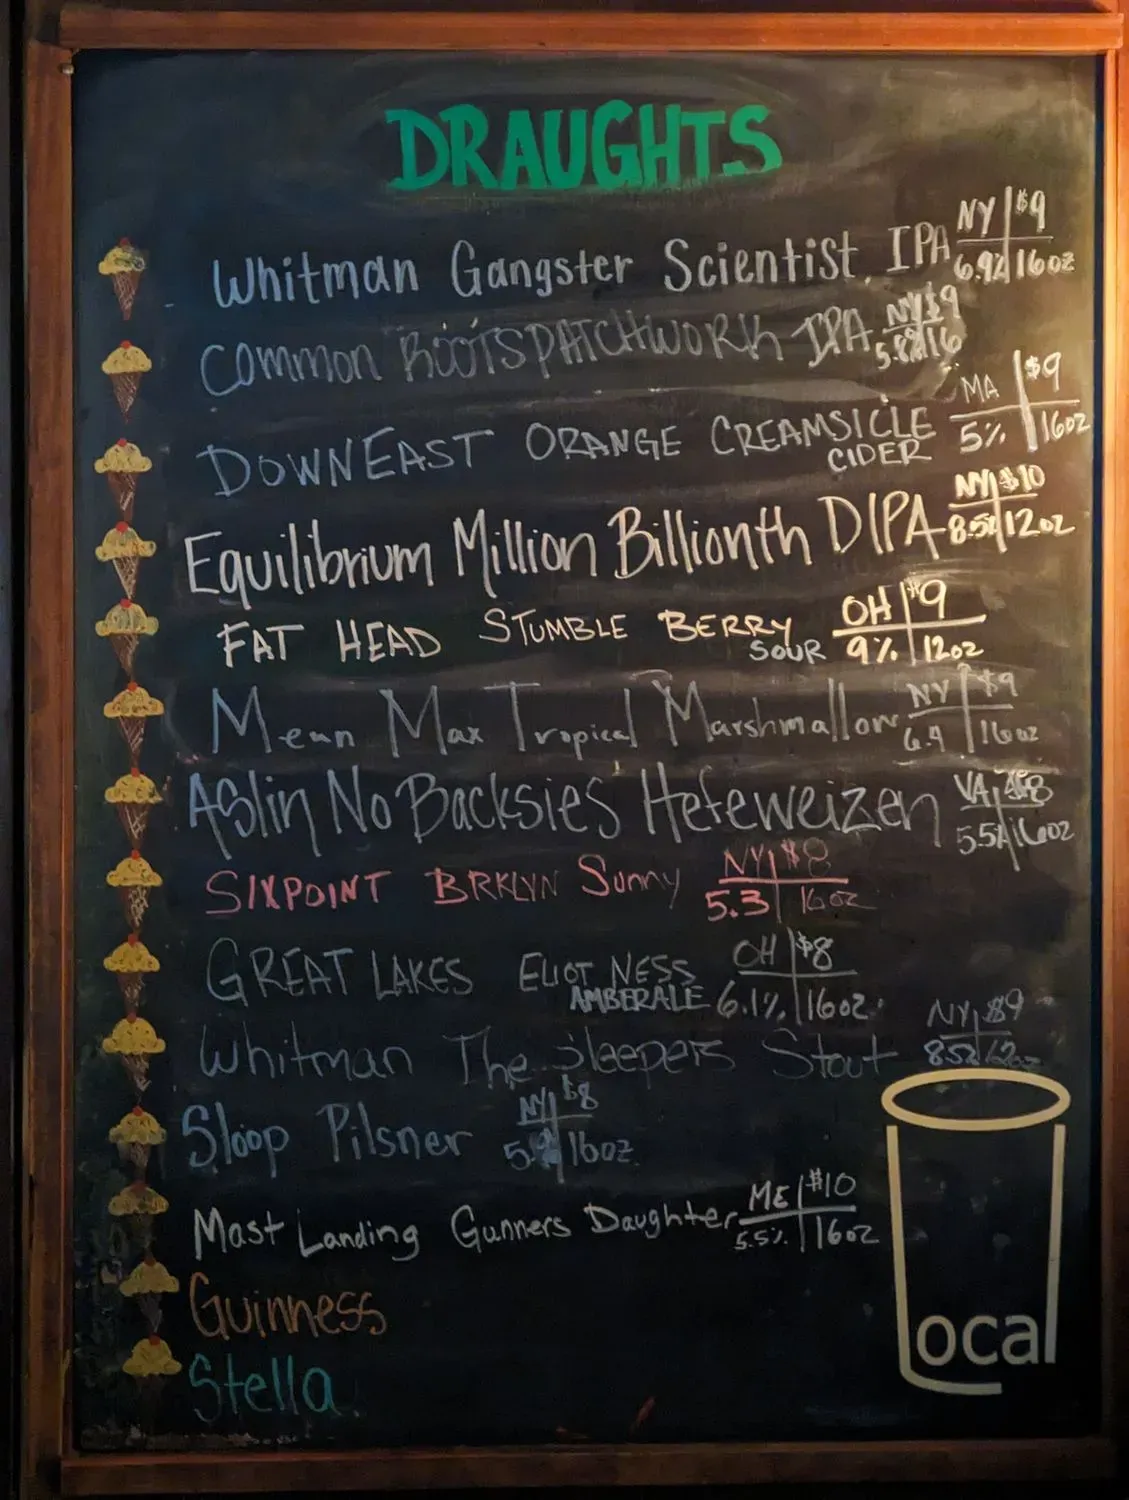 DRAUGHTS
Whitman Gangster Scientist IPA NY $9 6.9% 16oz
Common ROOTS PATCHWORK IPA NY $9 5.8% 16
DOWNEAST ORANGE CREAMSICLE CIDER MA $9 5% 16oz
Equilibrium Million Billionth DIPA NY $10 8.5% 12oz
FAT HEAD STUMBLE BERRY SOUR OH $9 9% 12oz
Mean Max Tropical Marshmallow NY $9 6.4 16oz
Aslin No Backsies Hefeweizen VA $8 5.5% 16oz
SIXPOINT BRKLYN Sunny NY $8 5.3 16oz
GREAT LAKES ELIOT NESS AMBER ALE OH $8 6.1% 16oz
Whitman The Sleepers Stout NY $9 8.5% 12oz
Sloop Pilsner NY $8 16oz
Mast Landing Gunners Daughter ME $10 5.5% 16oz
Guinness
Stella
Local